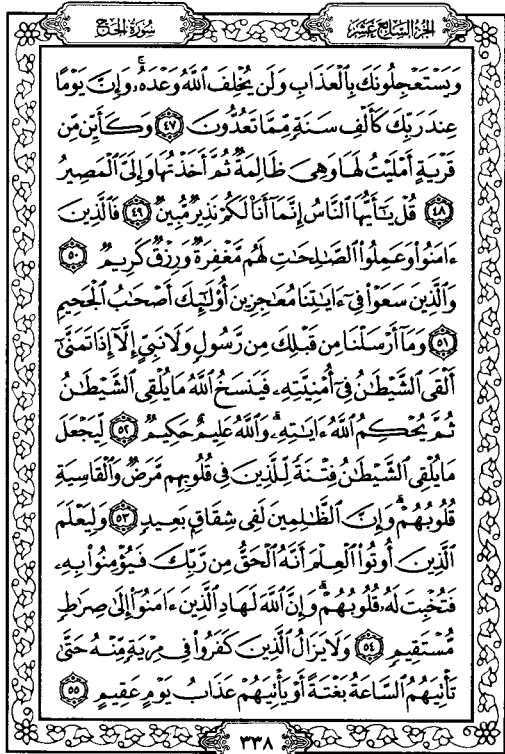 الجزء السابع عشر
سورة الحج
وَيَسْتَعْجِلُونَكَ بِالْعَذَابِ وَلَن يُخْلِفَ اللَّهُ وَعْدَهُۥ ۚ وَإِنَّ يَوْمًا
عِندَ رَبِّكَ كَأَلْفِ سَنَةٍ مِّمَّا تَعُدُّونَ ٤٧ وَكَأَيِّن مِّن
قَرْيَةٍ أَمْلَيْتُ لَهَا وَهِىَ ظَالِمَةٌ ثُمَّ أَخَذْتُهَا وَإِلَىَّ الْمَصِيرُ
٤٨ قُلْ يَٰٓأَيُّهَا النَّاسُ إِنَّمَآ أَنَا۠ لَكُمْ نَذِيرٌ مُّبِينٌ ٤٩ فَالَّذِينَ
ءَامَنُوا۟ وَعَمِلُوا۟ الصَّٰلِحَٰتِ لَهُم مَّغْفِرَةٌ وَرِزْقٌ كَرِيمٌ ٥٠
وَالَّذِينَ سَعَوْا۟ فِىٓ ءَايَٰتِنَا مُعَٰجِزِينَ أُو۟لَٰٓئِكَ أَصْحَٰبُ الْجَحِيمِ
٥١ وَمَآ أَرْسَلْنَا مِن قَبْلِكَ مِن رَّسُولٍ وَلَا نَبِىٍّ إِلَّآ إِذَا تَمَنَّىٰٓ
أَلْقَى الشَّيْطَٰنُ فِىٓ أُمْنِيَّتِهِۦ فَيَنسَخُ اللَّهُ مَا يُلْقِى الشَّيْطَٰنُ
ثُمَّ يُحْكِمُ اللَّهُ ءَايَٰتِهِۦ ۗ وَاللَّهُ عَلِيمٌ حَكِيمٌ ٥٢ لِّيَجْعَلَ
مَا يُلْقِى الشَّيْطَٰنُ فِتْنَةً لِّلَّذِينَ فِى قُلُوبِهِم مَّرَضٌ وَالْقَاسِيَةِ
قُلُوبُهُمْ ۗ وَإِنَّ الظَّٰلِمِينَ لَفِى شِقَاقٍۭ بَعِيدٍ ٥٣ وَلِيَعْلَمَ
الَّذِينَ أُوتُوا۟ الْعِلْمَ أَنَّهُ الْحَقُّ مِن رَّبِّكَ فَيُؤْمِنُوا۟ بِهِۦ
فَتُخْبِتَ لَهُۥ قُلُوبُهُمْ ۗ وَإِنَّ اللَّهَ لَهَادِ الَّذِينَ ءَامَنُوٓا۟ إِلَىٰ صِرَٰطٍ
مُّسْتَقِيمٍ ٥٤ وَلَا يَزَالُ الَّذِينَ كَفَرُوا۟ فِى مِرْيَةٍ مِّنْهُ حَتَّىٰ
تَأْتِيَهُمُ السَّاعَةُ بَغْتَةً أَوْ يَأْتِيَهُمْ عَذَابُ يَوْمٍ عَقِيمٍ ٥٥
٣٣٨